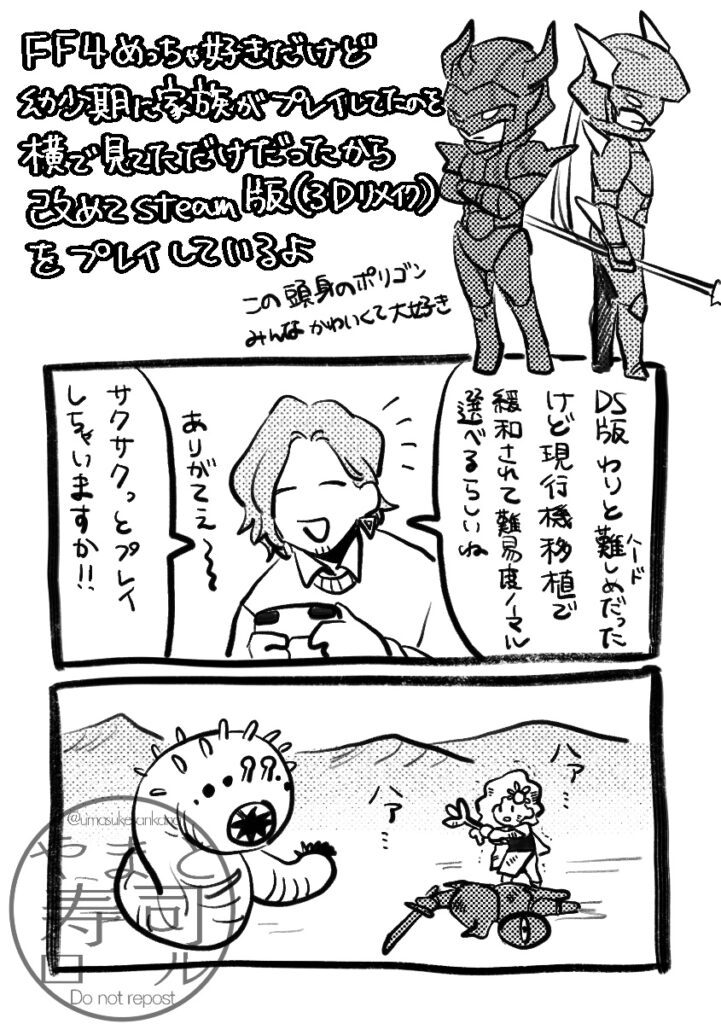 FF4めっちゃ好きだけど
幼少期に家族がプレイしてたのを
横で見てただけだったから
改めてsteam版(3Dリメイク)
をプレイしているよ
この頭身のポリゴン
みんなかわいくて大好き
DS版わりと難しめだった
ハード
けど現行機移植で
緩和されて難易度ノーマル
選べるらしいね
ありがてえ〜〜
サクサクっとプレイ
しちゃいますか!!
ハァ…
ハァ…
やまと
寿司
ロール
Do not repost